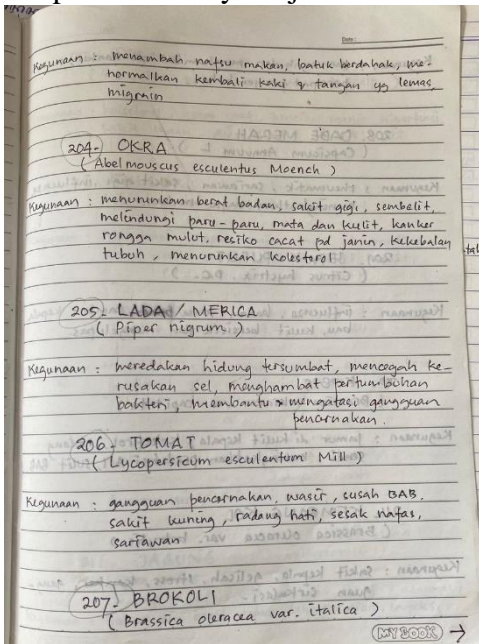 Date :
Kegunaan : menambah nafsu makan, batuk berdahak, me-
normalkan kembali kaki & tangan yg lemas,
migrain
204.) OKRA
(Abelmouscus esculentus Moench)
Kegunaan : menurunkan berat badan, sakit gigi, sembelit,
melindungi paru-paru, mata dan kulit, kanker
rongga mulut, resiko cacat pd janin, kekebalan
tubuh, menurunkan kolesterol
205.) LADA / MERICA
(Piper nigrum)
Kegunaan : meredakan hidung tersumbat, mencegah ke-
rusakan sel, menghambat pertumbuhan
bakteri, membantu mengatasi gangguan
pencernakan.
206.) TOMAT
(Lycopersicum esculentum Mill)
Kegunaan : gangguan pencernakan, wasir, susah BAB,
sakit kuning, radang hati, sesak nafas,
sariawan
207.) BROKOLI
(Brassica oleracea var. italica)
MY BOOK